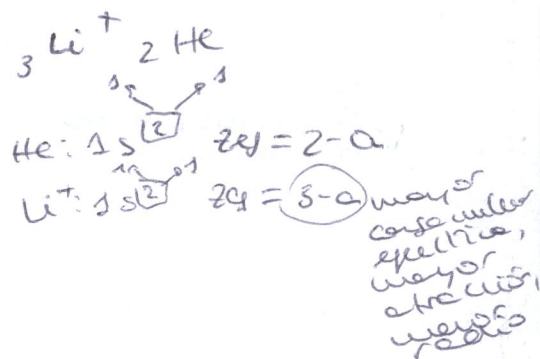 ₃Li⁺ ₂He
1 1
He: 1s² Zef = 2-a
1 1
Li⁺: 1s² Zef = 3-a mayor
carga nuclear
efectiva,
mayor
atracción,
menor
radio